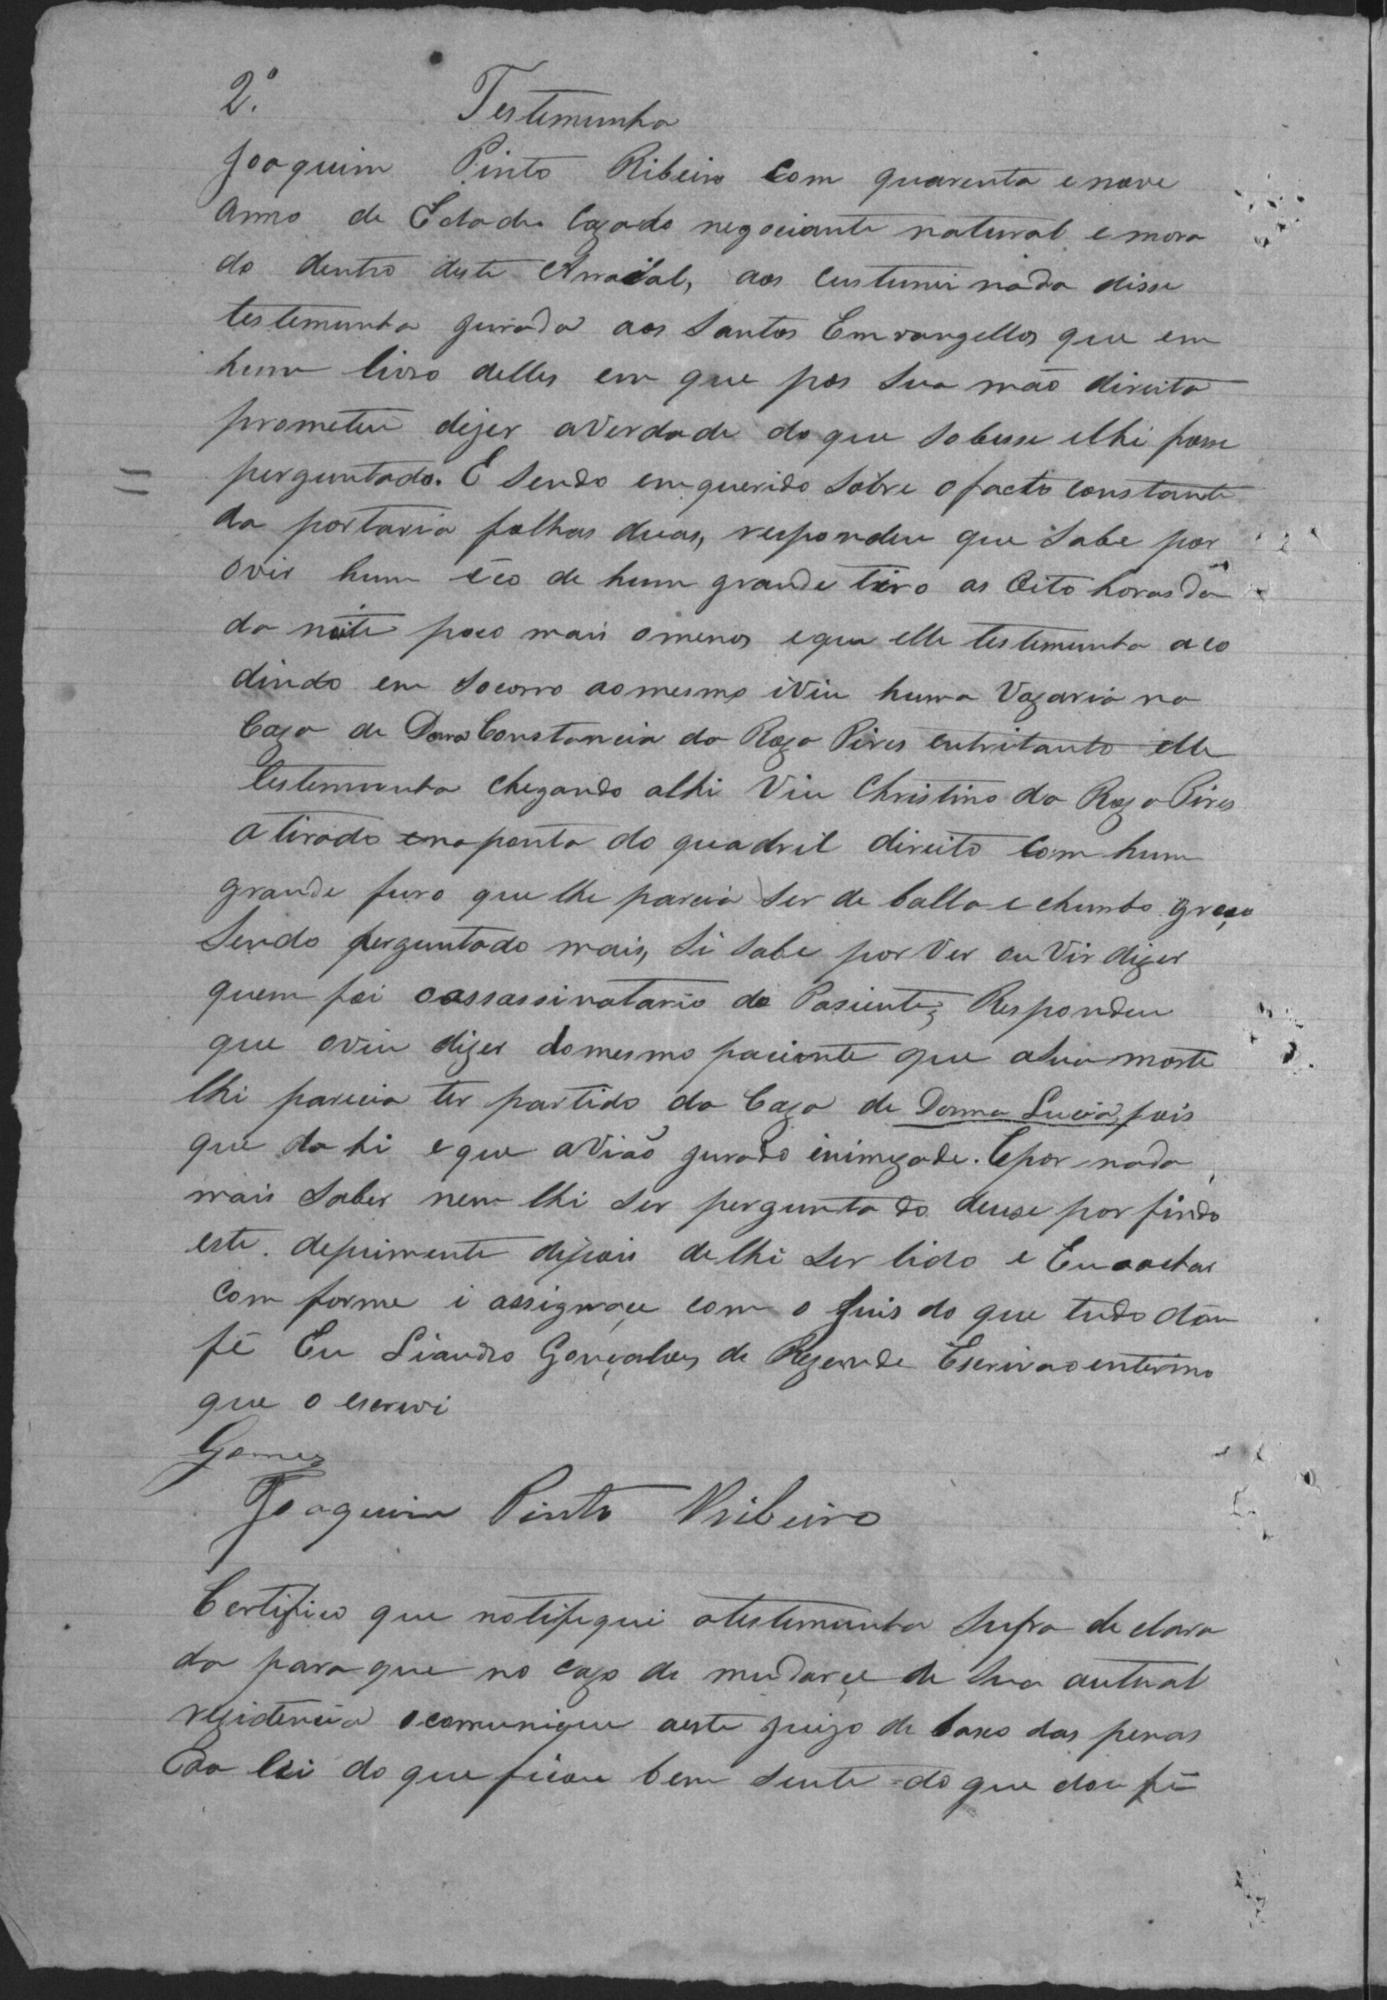 2.º Testemunha
Joaquim Pinto Ribeiro Com quarenta e nove
anno de Edade Cazado negociante natural e mora
do dentro deste Arraial, aos custumi nada disse
testemunha jurada aos Santos Emvangellos que em
hum livro delles em que pos Sua mão direita
prometeu dizer averdade do que Sobesse elhi fosse
perguntado. E Sendo emquerido Sobre ofacto constante
da portaria folhas duas, respondeu que Sabe por
ovir hum éco de hum grande tiro as Oito horas da
da noite poco mais omenos eque elle testemunha aco
dindo em Socorro aomesmo iviu huma Vozaria na
Caza de Dona Constancia da Roza Pires entritanto elle
testemunha chegando alhi Viu Christino da Roza Pires
atirado na ponta do quadril direito Com hum
grande furo que lhe parecia Ser de balla e chumbo groço
Sendo perguntado mais, Si Sabe por Ver ou Vir dizer
quem foi oassassinatario do Pasiente, Respondeu
que oviu dizer domesmo paciente que aSua morte
lhi parecia ter partido da Caza de Donna Lucia, pois
que dahi eque avião jurado inimizade. Epor nada
mais Saber nem lhi Ser perguntado deuse por findo
este depuimento dipois delhi Ser lido e Enachar
Com forme i assignoce com o Juis do que tudo dou
fé Eu Liandro Gonçalves de Rezende Escrivao enterino
que o escrevi
Gomes
Joaquim Pinto Ribeiro
Certifico que notifiquei atestemunha Supra declara
da para que no cazo de mudarçe de Sua autual
rezidencia ocomunique aeste juizo de baxo das penas
da lei do que ficou bem Sente do que dou fé